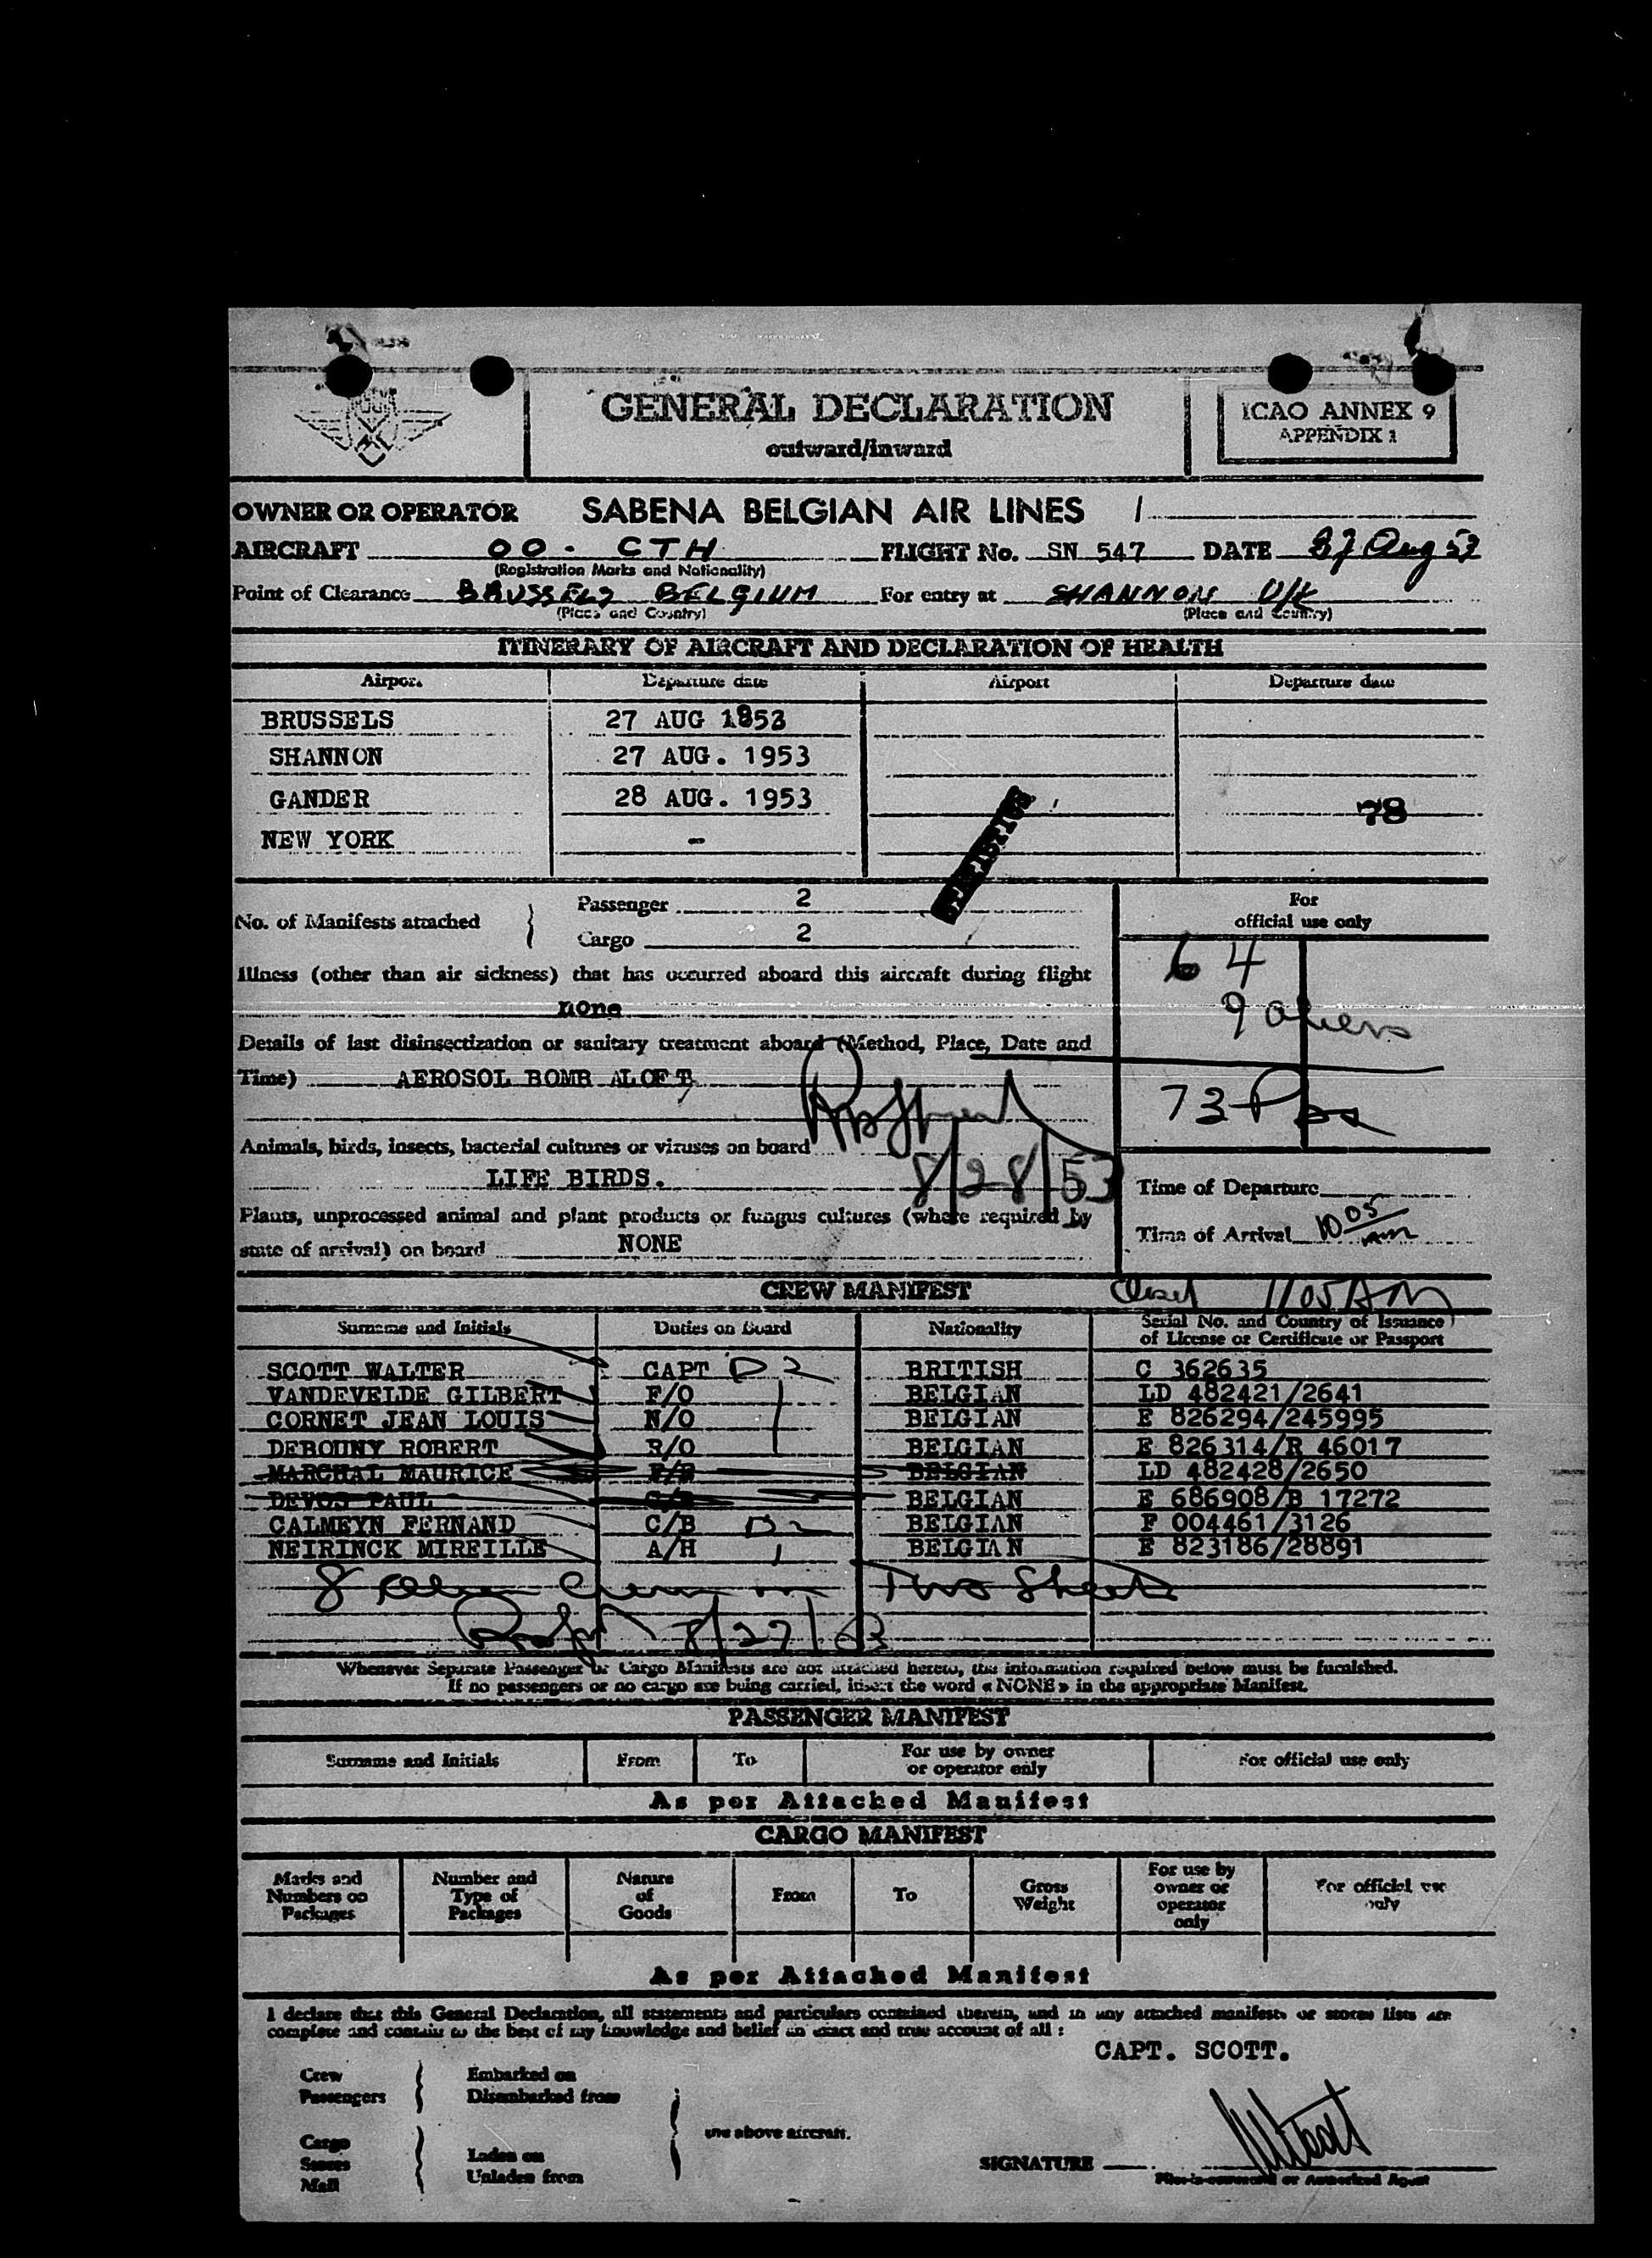 GENERAL DECLARATION
outward/inward
ICAO ANNEX 9
APPENDIX 1
OWNER OR OPERATOR SABENA BELGIAN AIR LINES
AIRCRAFT OO - CTH FLIGHT No. SN 547 DATE 27 Aug 53
(Registration Marks and Nationality)
Point of Clearance BRUSSELS BELGIUM For entry at SHANNON U/K
(Place and Country) (Place and Country)
ITINERARY OF AIRCRAFT AND DECLARATION OF HEALTH
Airport Departure date Airport Departure date
BRUSSELS 27 AUG 1953
SHANNON 27 AUG. 1953
GANDER 28 AUG. 1953 78
NEW YORK -
STATISTICS
No. of Manifests attached
Passenger 2
Cargo 2
For
official use only
64
9 aliens
73 Pax
Illness (other than air sickness) that has occurred aboard this aircraft during flight
none
Details of last disinsectization or sanitary treatment aboard (Method, Place, Date and
Time) AEROSOL BOMB ALOFT
Animals, birds, insects, bacterial cultures or viruses on board
LIFE BIRDS. 8/28/53
Time of Departure
Plants, unprocessed animal and plant products or fungus cultures (where required by
state of arrival) on board NONE
Time of Arrival 10 05 AM
CREW MANIFEST 1105 AM
Surname and Initials Duties on Board Nationality Serial No. and Country of Issuance
of License or Certificate or Passport
SCOTT WALTER CAPT D2 BRITISH C 362635
VANDEVELDE GILBERT F/O BELGIAN LD 482421/2641
CORNET JEAN LOUIS N/O BELGIAN E 826294/245995
DEBOUNY ROBERT R/O BELGIAN E 826314/R 46017
MARCHAL MAURICE BELGIAN LD 482428/2650
DEVOS PAUL BELGIAN E 686908/B 17272
CALMEYN FERNAND C/B D2 BELGIAN F 004461/3126
NEIRINCK MIREILLE A/H BELGIAN E 823186/28891
8 Crew on Two Sheets
8/27/53
Whenever Separate Passenger or Cargo Manifests are not attached hereto, the information required below must be furnished.
If no passengers or no cargo are being carried, insert the word « NONE » in the appropriate Manifest.
PASSENGER MANIFEST
Surname and Initials From To For use by owner
or operator only For official use only
As per Attached Manifest
CARGO MANIFEST
Marks and
Numbers on
Packages
Number and
Type of
Packages
Nature
of
Goods
From To
Gross
Weight
For use by
owner or
operator
only
For official use
only
As per Attached Manifest
I declare that this General Declaration, all statements and particulars contained therein, and in any attached manifests or stores lists are
complete and contain to the best of my knowledge and belief an exact and true account of all :
CAPT. SCOTT.
Crew
Passengers
Embarked on
Disembarked from
the above aircraft.
Cargo
Stores
Mail
Laden on
Unladen from
SIGNATURE
Pilot-in-command or Authorized Agent